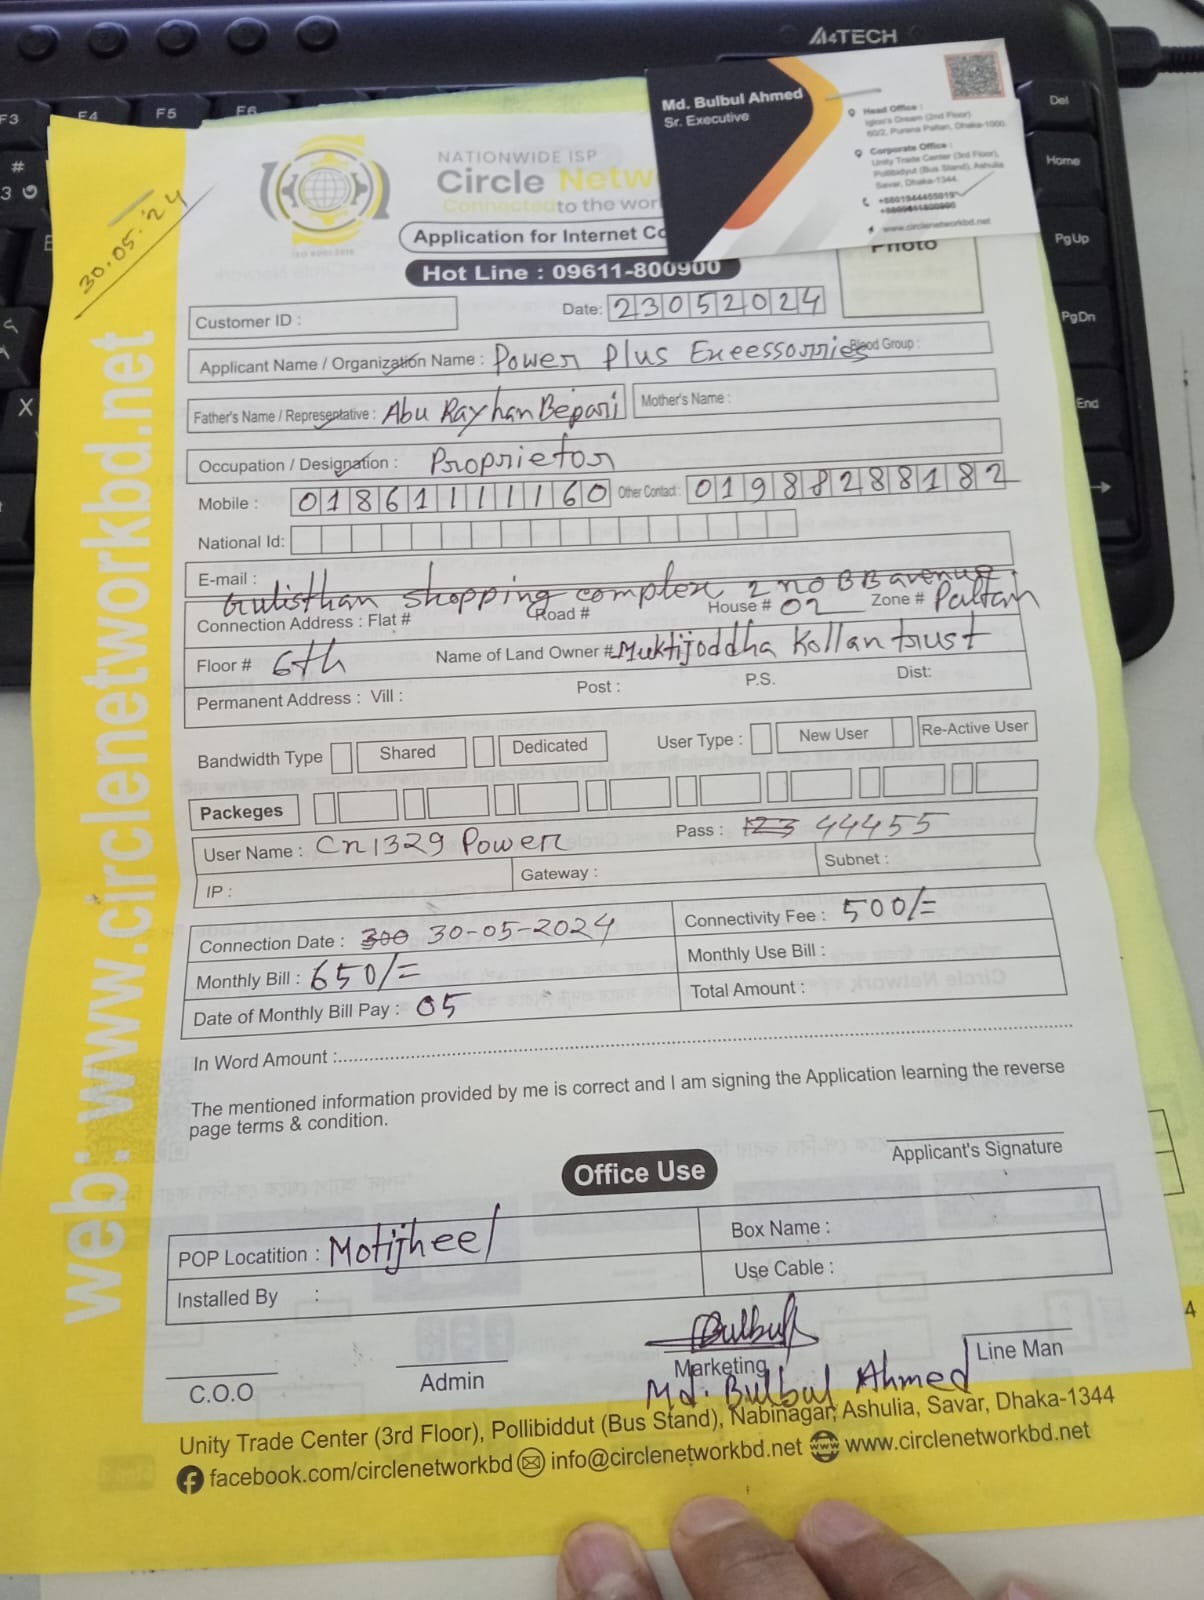 A4TECH
F3
F4
F5
F6
Del
Home
PgUp
PgDn
End
Md. Bulbul Ahmed
Sr. Executive
Head Office :
60/2, Purana Paltan, Dhaka-1000
Corporate Office :
Unity Trade Center (3rd Floor),
(Bus Stand), Ashulia
Savar, Dhaka-1344.
www.circlenetworkbd.net
30.05.'24
NATIONWIDE ISP
Circle Netw
Connected to the wor
Application for Internet Co
Hot Line : 09611-800900
Photo
Customer ID :
Date: 23052024
Applicant Name / Organization Name : Power Plus Exeessorries Blood Group :
Father's Name / Representative : Abu Rayhan Bepari Mother's Name :
Occupation / Designation : Proprietor
Mobile : 01861111160 Other Contact : 01988288182
National Id:
E-mail :
Gulisthan shopping complex 2 no BB avenue
Connection Address : Flat # Road # House # 02 Zone # Paltan
Floor # 6th Name of Land Owner # Muktijoddha Kollan trust
Permanent Address : Vill : Post : P.S. Dist:
Bandwidth Type Shared Dedicated User Type : New User Re-Active User
Packeges
User Name : Cn1329 Power Pass : 123 44455
IP : Gateway : Subnet :
Connection Date : 300 30-05-2024 Connectivity Fee : 500/=
Monthly Bill : 650/= Monthly Use Bill :
Date of Monthly Bill Pay : 05 Total Amount :
In Word Amount :
The mentioned information provided by me is correct and I am signing the Application learning the reverse
page terms & condition.
Applicant's Signature
Office Use
POP Locatition : Motijheel Box Name :
Installed By : Use Cable :
Bulbul
C.O.O Admin Marketing Line Man
Md. Bulbul Ahmed
Unity Trade Center (3rd Floor), Pollibiddut (Bus Stand), Nabinagar, Ashulia, Savar, Dhaka-1344
facebook.com/circlenetworkbd info@circlenetworkbd.net www.circlenetworkbd.net
web: www.circlenetworkbd.net